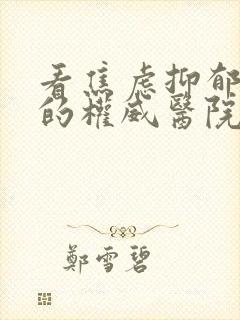 看焦虑抑郁
的權威醫院
鄭雪碧